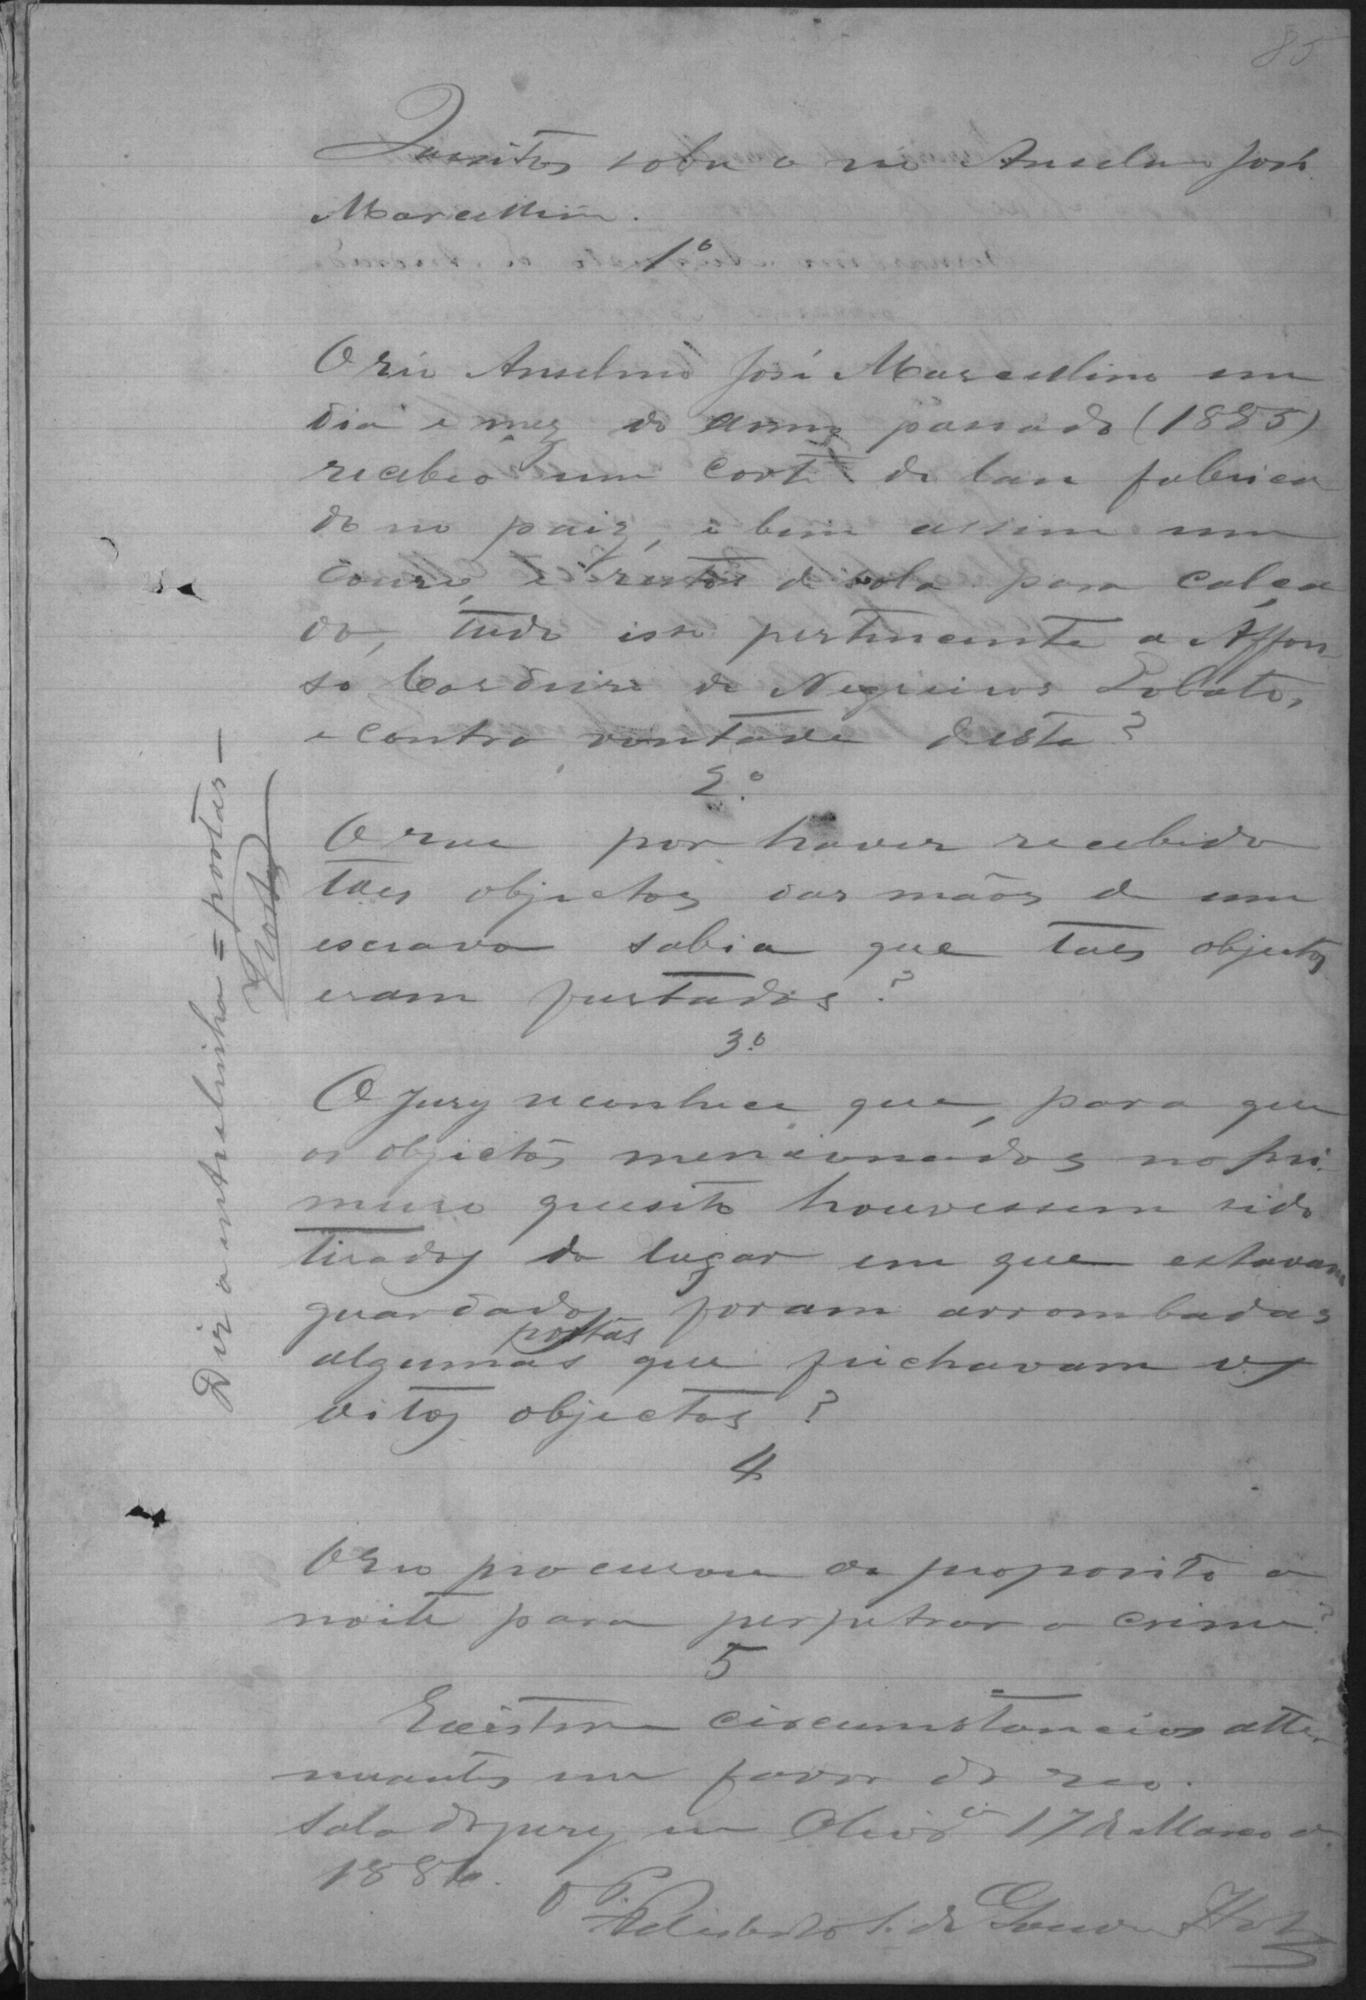 85
Quesitos sobre o reo Anselmo José
Marcellino.
1º
O reu Anselmo José Marcellino em
dia e mez do anno passado (1885)
recebeo um corte de lan fabrica
do no paiz, e bem assim um
couro, e restos de sola para calça
do, tudo isso pertencente a Affon
so Cordeiro de Negreiros Lobato,
e contra vontade deste?
2º
O reu por haver recebido
taes objectos das mãos de um
escravo sabia que taes objectos
eram furtados?
3º
O Jury reconhece que, para que
os objectos mencionados no pri
meiro quesito houvessem sido
tirados do lugar em que estavam
guardados foram arrombadas
portas
algumas que fichavam os
ditos objectos?
4
O reu procurou de proposito a
noite para perpetrar o crime?
5
Existem circumstancias atte
nuantes em favor do reo.
Sala do jury em 17 de Março de
1886.
Diz a entrelinha = portas —